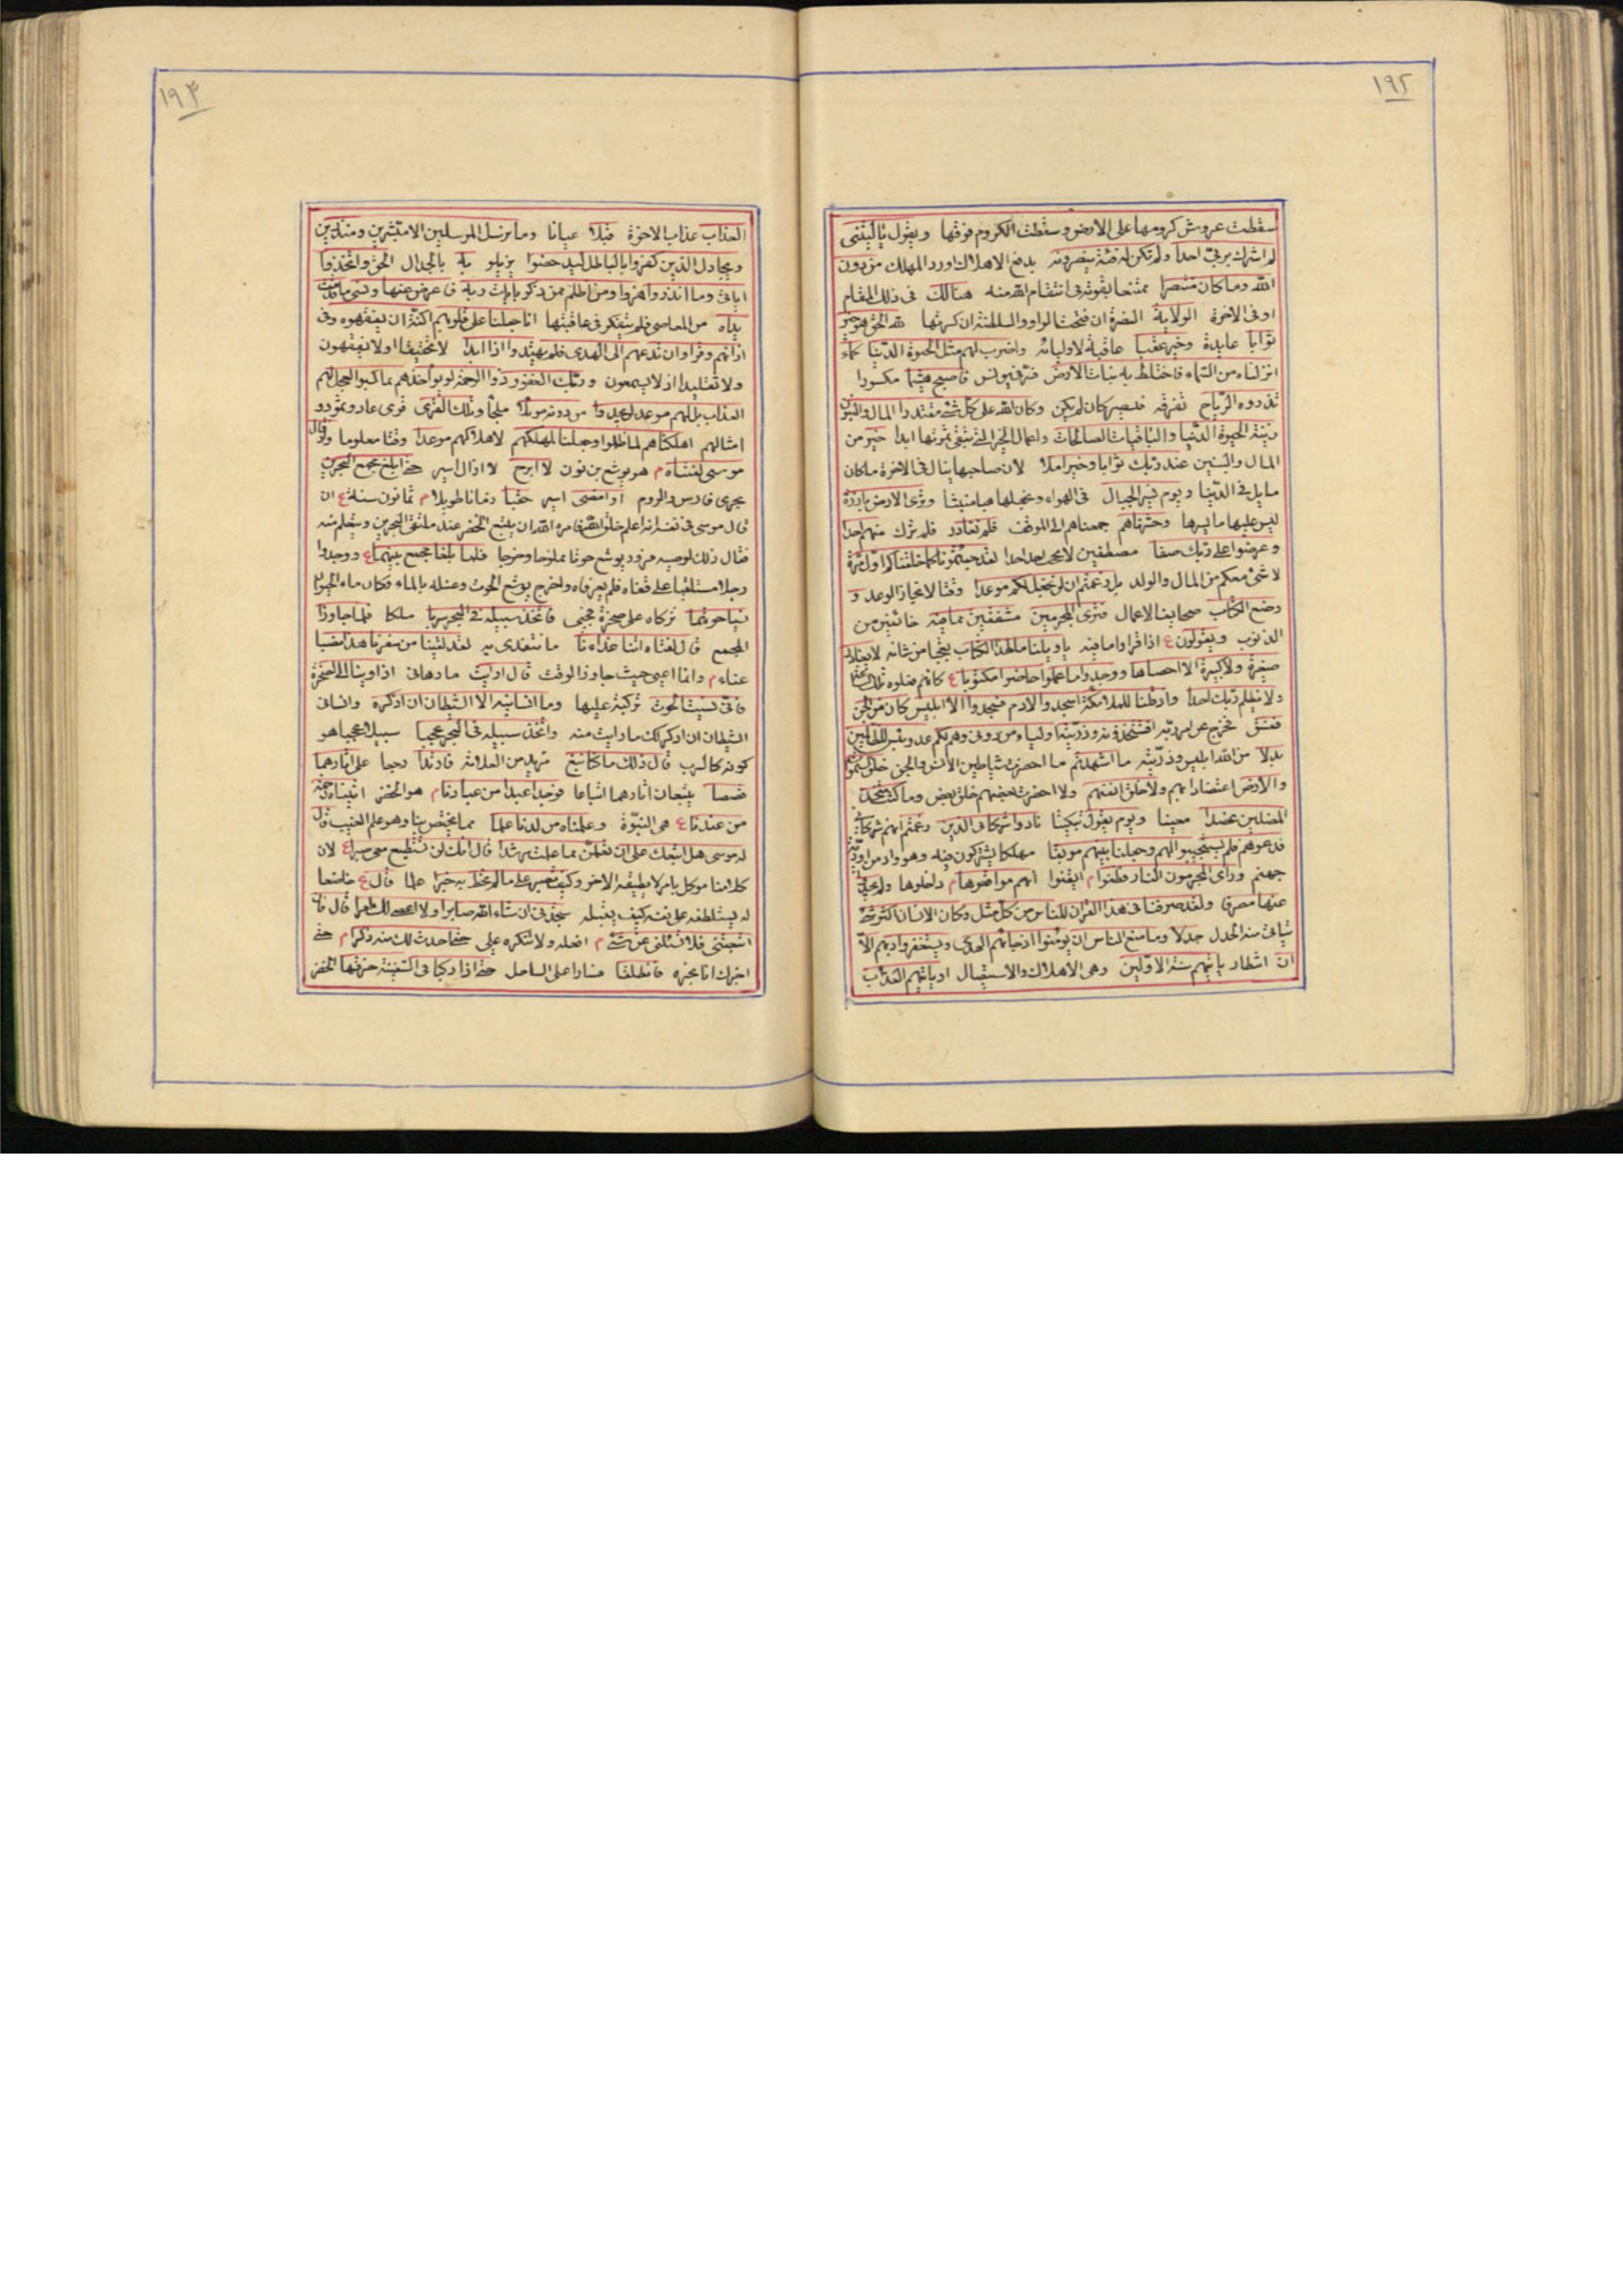 ١٩٢
سقطت عروش كرومها على الارض وسقطت الكروم فوقها ويقول ياليتنى
لم اشرك بربى احدا ولم تكن له فئة ينصرونه بدفع الاهلاك اورد المهلك من دون
الله وما كان منتصرا ممتنعا بقوته فى انتقام الله منه هنالك فى ذلك المقام
او فى الاخرة الولاية النصرة ان فتحت الواو والسلطنة ان كسرتها لله الحق هو خير
ثوابا عايدة وخير عقبا عاقبة لاوليائه واضرب لهم مثل الحيوة الدنيا كماء
انزلناه من السماء فاختلط به نبات الارض فاصبح هشيما مكسورا
تذروه الرياح تفرقه فيصير كان لم يكن وكان الله على كل شئ مقتدرا المال والبنون
زينة الحيوة الدنيا والباقيات الصالحات واعمال الخير التى تبقى ثمرتها ابدا خير من
المال والبنين عند ربك ثوابا وخير املا لان صاحبها ينال فى الاخرة ما كان
يامل فى الدنيا ويوم نسير الجبال فى الهواء ونجعلها هباء منبثا وترى الارض بارزة
ليس عليها ما يسترها وحشرناهم جمعناهم الى الموقف فلم نغادر فلم نترك منهم احدا
وعرضوا على ربك صفا مصطفين لا يحجب احد احدا لقد جئتمونا كما خلقناكم اول مرة
لا شئ معكم من المال والولد بل زعمتم ان لن نجعل لكم موعدا وقتا لانجاز الوعد و
وضع الكتاب صحايف الاعمال فترى المجرمين مشفقين مما فيه خائفين من
الذنوب ويقولون ع اذا قراوا ما فيه يا ويلتنا مال هذا الكتاب تعجبا من شانه لا يغادر
صغيرة ولا كبيرة الا احصاها ووجدوا ما عملوا حاضرا مكتوبا ع كانهم فعلوه تلك
ولا يظلم ربك احدا واذ قلنا للملائكة اسجدوا لادم فسجدوا الا ابليس كان من الجن
ففسق فخرج عن امر ربه افتتخذونه وذريته اولياء من دونى وهم لكم عدو بئس للظالمين
بدلا من الله ابليس وذريته ما اشهدتهم ما احضرت شياطين الانس والجن خلق السموات
والارض اعتضادا بهم ولا خلق انفسهم ولا احضرت بعضهم خلق بعض وما كنت متخذ
المضلين عضدا معينا ويوم يقول تبكيتا نادوا شركائى الذين زعمتم انهم شركائى
فدعوهم فلم يستجيبوا لهم وجعلنا بينهم موبقا مهلكا يشتركون فيه وهو واد من اودية
جهنم وراى المجرمون النار فظنوا م ايقنوا انهم مواقعوها م داخلوها ولم يجدوا
عنها مصرفا ولقد صرفنا فى هذا القران للناس من كل مثل وكان الانسان اكثر شئ
يتاتى منه الجدل جدلا وما منع الناس ان يؤمنوا اذ جائهم الهدى ويستغفروا ربهم الا
ان انتظار ياتيهم سنة الاولين وهى الاهلاك والاستيصال او ياتيهم العذاب
١٩٣
العذاب عذاب الاخرة قبلا عيانا وما نرسل المرسلين الا مبشرين ومنذرين
ويجادل الذين كفروا بالباطل ليدحضوا يزيلو به بالجدال الحق واتخذوا
اياتى وما انذروا هزوا ومن اظلم ممن ذكر بايات ربه فاعرض عنها ونسى ما قدمت
يداه من المعاصى فلم يتفكر فى عاقبتها انا جعلنا على قلوبهم اكنة ان يفقهوه وفى
اذانهم وقرا وان تدعهم الى الهدى فلن يهتدوا اذا ابدا لا تحقيقا ولا يفقهون
ولا تقليدا اذ لا يسمعون وربك الغفور ذوا الرحمة لو يواخذهم بما كسبوا لعجل لهم
العذاب بل لهم موعد لن يجدوا من دونه موئلا ملجأ وتلك القرى قرى عاد وثمود و
امثالهم اهلكناهم لما ظلموا وجعلنا لمهلكهم لاهلاكهم موعدا وقتا معلوما واذ قال
موسى لفتاه م هو يوشع بن نون لا ابرح لا ازال اسير حتى ابلغ مجمع البحرين
بحرى فارس والروم او امضى اسير حقبا زمانا طويلا م ثمانون سنة ع ان
قال موسى فى نفسه انه اعلم خلق الله فامره الله ان يتبع الخضر عند ملتقى البحرين ويتعلم منه
فقال ذلك لوصيه فزود يوشع حوتا مملوحا وخرجا فلما بلغا مجمع بينهما ع ووجدوا
رجلا مستلقيا على قفاه فلم يعرفاه واخرج يوشع الحوت وغسله بالماء فكان ماء الحيوان
نسيا حوتهما تركاه على صخرة فحيى فاتخذ سبيله فى البحر سربا مسلكا فلما جاوزا
المجمع قال لفتاه اتنا غداءنا ما نتغدى به لقد لقينا من سفرنا هذا نصبا
عناء م وانما اعيى حيث جاوز الوقت قال ارايت ما دهانى اذ اوينا الى الصخرة
فانى نسيت الحوت تركته عليها وما انسانيه الا الشيطان ان اذكره وانسانى
الشيطان ان اذكر لك ما رايت منه واتخذ سبيله فى البحر عجبا سبيلا عجبا هو
كونه كالسرب قال ذلك ما كنا نبغ نريد من العلامة فارتدا رجعا على اثارهما
قصصا يتبعان اثارهما اتباعا فوجدا عبدا من عبادنا م هو الخضر اتيناه رحمة
من عندنا ع هى النبوة وعلمناه من لدنا علما مما يختص بنا وهو علم الغيب قال
له موسى هل اتبعك على ان تعلمن مما علمت رشدا قال انك لن تستطيع معى صبرا ع لان
كلا منا موكل بامر لا يطيقه الاخر وكيف تصبر على ما لم تحط به خبرا علما قال ع خاضعا
له يستلطفه على نفسه كيف يقبله ستجدنى ان شاء الله صابرا ولا اعصى لك امرا قال فان
اتبعتنى فلا تسئلنى عن شئ م افعله ولا تنكره على حتى احدث لك منه ذكرا م حتى
اخبرك انا بخبره فانطلقا فسارا على الساحل حتى اذا ركبا فى السفينة خرقها الخضر